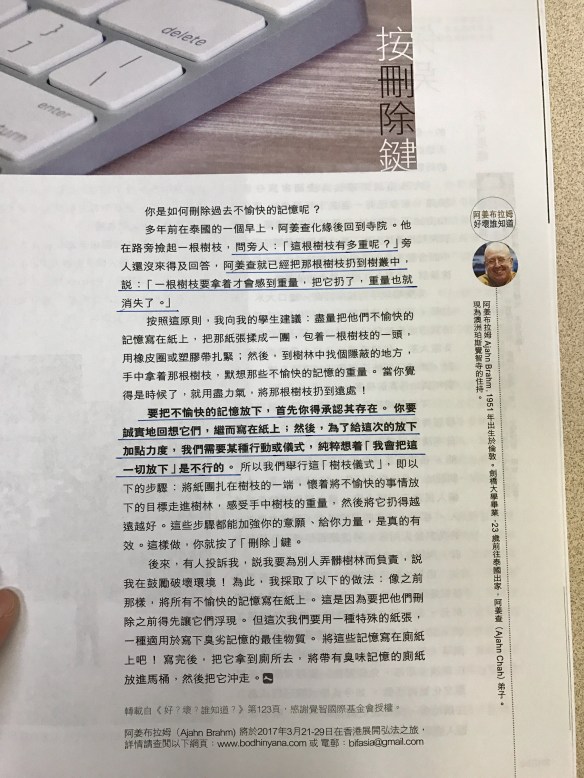 delete
}
]
|
\
enter
return
按刪除鍵
你是如何刪除過去不愉快的記憶呢？
多年前在泰國的一個早上，阿姜查化緣後回到寺院。他
在路旁撿起一根樹枝，問旁人：「這根樹枝有多重呢？」旁
人還沒來得及回答，阿姜查就已經把那根樹枝扔到樹叢中，
説：「一根樹枝要拿着才會感到重量，把它扔了，重量也就
消失了。」
按照這原則，我向我的學生建議：盡量把他們不愉快的
記憶寫在紙上，把那紙張揉成一團，包着一根樹枝的一頭，
用橡皮圈或塑膠帶扎緊；然後，到樹林中找個隱蔽的地方，
手中拿着那根樹枝，默想那些不愉快的記憶的重量。當你覺
得是時候了，就用盡力氣，將那根樹枝扔到遠處！
要把不愉快的記憶放下，首先你得承認其存在。你要
誠實地回想它們，繼而寫在紙上；然後，為了給這次的放下
加點力度，我們需要某種行動或儀式，純粹想着「我會把這
一切放下」是不行的。所以我們舉行這「樹枝儀式」，即以
下的步驟：將紙團扎在樹枝的一端，懷着將不愉快的事情放
下的目標走進樹林，感受手中樹枝的重量，然後將它扔得越
遠越好。這些步驟都能加強你的意願、給你力量，是真的有
效。這樣做，你就按了「刪除」鍵。
後來，有人投訴我，説我要為別人弄髒樹林而負責，説
我在鼓勵破壞環境！為此，我採取了以下的做法：像之前
那樣，將所有不愉快的記憶寫在紙上。這是因為要把他們刪
除之前得先讓它們浮現。但這次我們要用一種特殊的紙張，
一種適用於寫下臭劣記憶的最佳物質。將這些記憶寫在廁紙
上吧！寫完後，把它拿到廁所去，將帶有臭味記憶的廁紙
放進馬桶，然後把它沖走。
轉載自《好？壞？誰知道？》第123頁，感謝覺智國際基金會授權。
阿姜布拉姆（Ajahn Brahm) 將於2017年3月21-29日在香港展開弘法之旅，
詳情請查閲以下網頁：www.bodhinyana.com 或 電郵：bifasia@gmail.com
阿姜布拉姆
好壞誰知道
阿姜布拉姆 Ajahn Brahm, 1951 年出生於倫敦。劍橋大學畢業，23 歲前往泰國出家，阿姜查（Ajahn Chah）弟子。
現為澳洲珀斯覺智寺的住持。